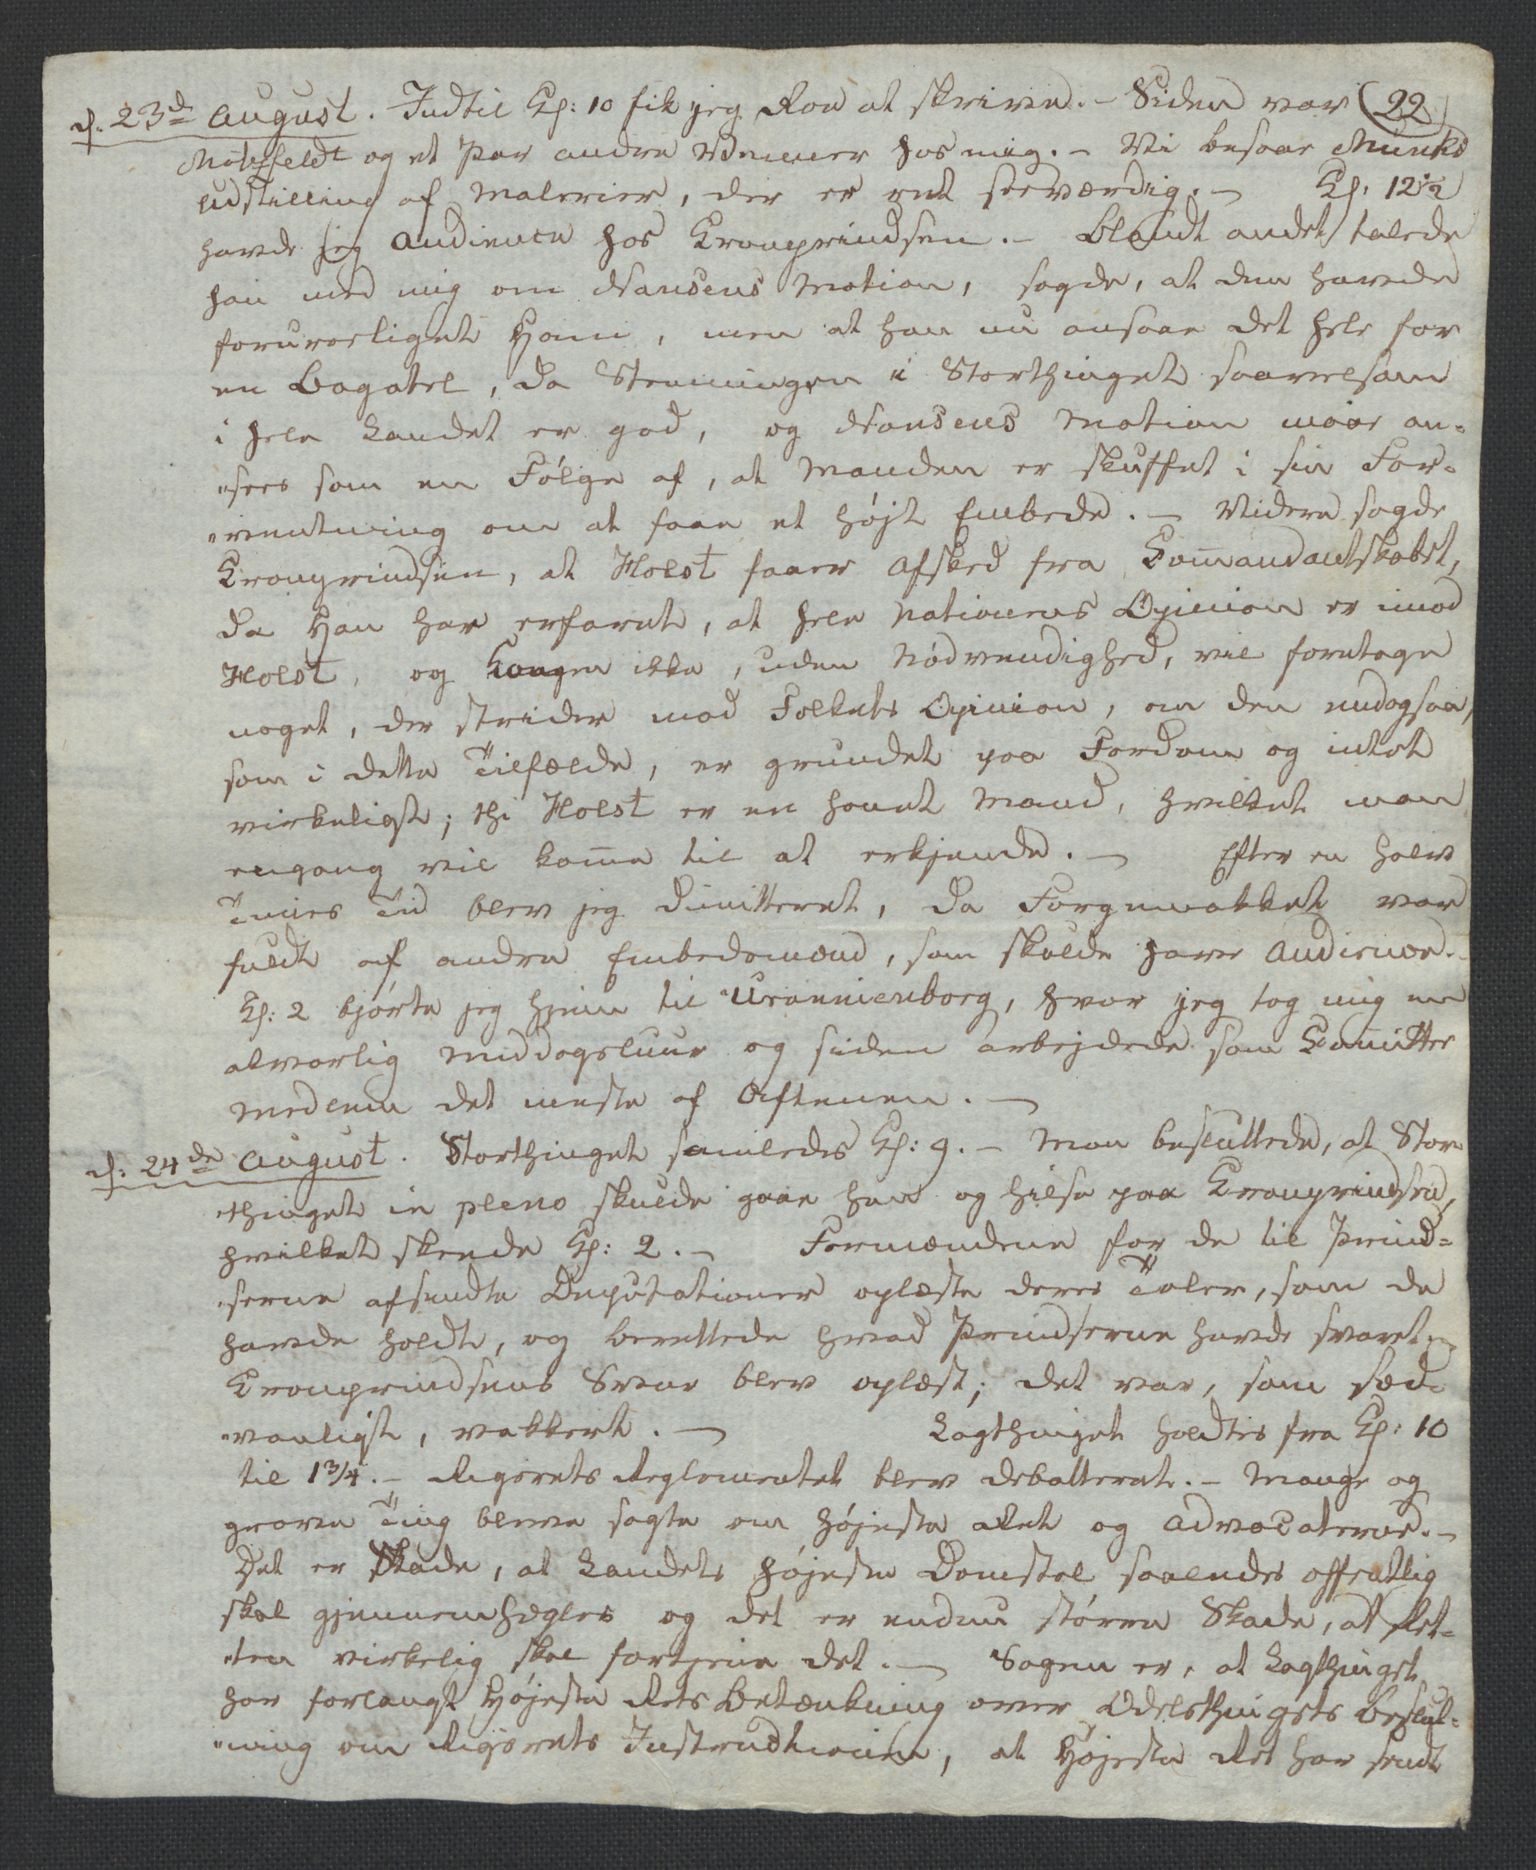 d. 23de August. Indtil Kl: 10 fik jeg Roe at skrive. – Siden var (22)
Motzfeldt og et Par andre Venner hos mig. – Vi besaae Munks
Udstilling af Malerier, der er ret seeværdig. – Kl. 12½
havde jeg Audience hos Kronprindsen. – Blandt andet talede
han med mig om Nansens Motion, sagde, at den havde
foruroeliget Ham, men at han nu ansaae det hele for
en Bagatel, da Stemningen i Storthinget saavelsom
i hele Landet er god, og Nansens Motion maae an-
"sees som en Følge af, at Manden er skuffet i sin For-
"ventning om at faae et højt Embede. – Videre sagde
Kronprindsen, at Holst faaer Afsked fra Com̅andantskabet,
da Han har erfaret, at hele Nationens Opinion er imod
Holst, og Kongen ikke, uden Nødvendighed, vil foretage
noget, der strider mod Folkets Opinion, om den endogsaa,
som i dette Tilfælde, er grundet paa Fordom og intet
virkeligt; thi Holst er en honet Mand, hvilket man
engang vil kom̅e til at erkjende. – Efter en halv
Times Tid blev jeg dimitteret, da Forgemakket var
fuldt af andre Embedsmænd, som skulde have Audience. –
Kl: 2 kjørte jeg hjem til Uranienborg, hvor jeg tog mig en
alvorlig Middagsluur og siden arbejdede som Comittee
Medlem det meste af Aftenen. –
d: 24de August. Storthinget samledes Kl: 9. – Man besluttede, at Stor-
"thinget in pleno skulde gaae hen og hilse paa Kronprindsen,
hvilket skeede Kl: 2. – Formændene for de til Prind-
"serne afsendte Deputationer oplæste deres Taler, som de
havde holdt, og berettede hvad Prindserne havde svaret. –
Kronprindsens Svar blev oplæst; det var, som sæd-
"vanligt, vakkert. – Lagthinget holdtes fra Kl: 10
til 1¾. – Rigsrets Reglementet blev debatteret. – Mange og
grove Ting bleve sagte om Højeste Ret og Advocaterne. –
Det er Skade, at Landets højeste Domstol saaledes offentlig
skal gjennemhegles og det er endnu større Skade, at Ret-
"ten virkelig skal fortjene det. – Sagen er, at Lagthinget
har forlangt Højeste Rets Betænkning over Odelsthingets Beslut-
"ning om Rigsrets Instructionen, at Højeste Ret har sendt